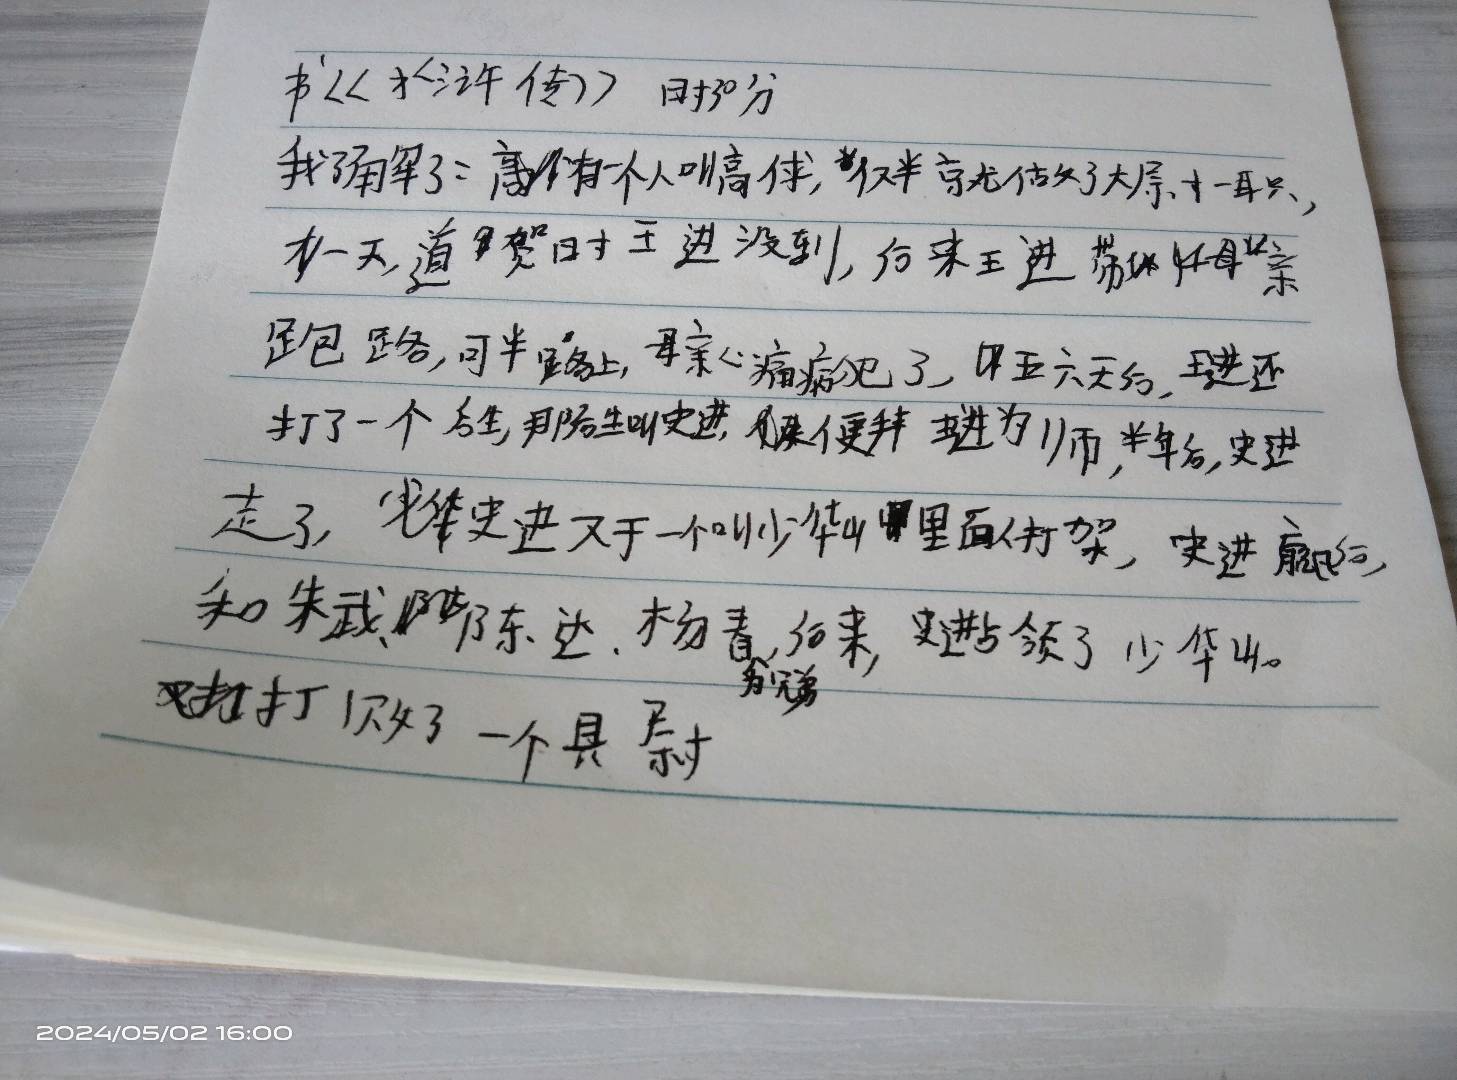 书<<水浒传>> 时30分
我了解了:有一个人叫高俅,仅半京尤估做了大尉、
有一天,道贺时王进没到,后来王进带他母亲
跑路,可半路上,母亲心痛病犯了,五六天后,王进还
打了一个后生,那后生叫史进,便拜王进为师,半年后,史进
走了,史进又于一个叫少华山里面人打架,史进赢后,
和朱武、陈达、杨春为兄弟,后来,史进占领了少华山。
打败了一个县尉
2024/05/02 16:00